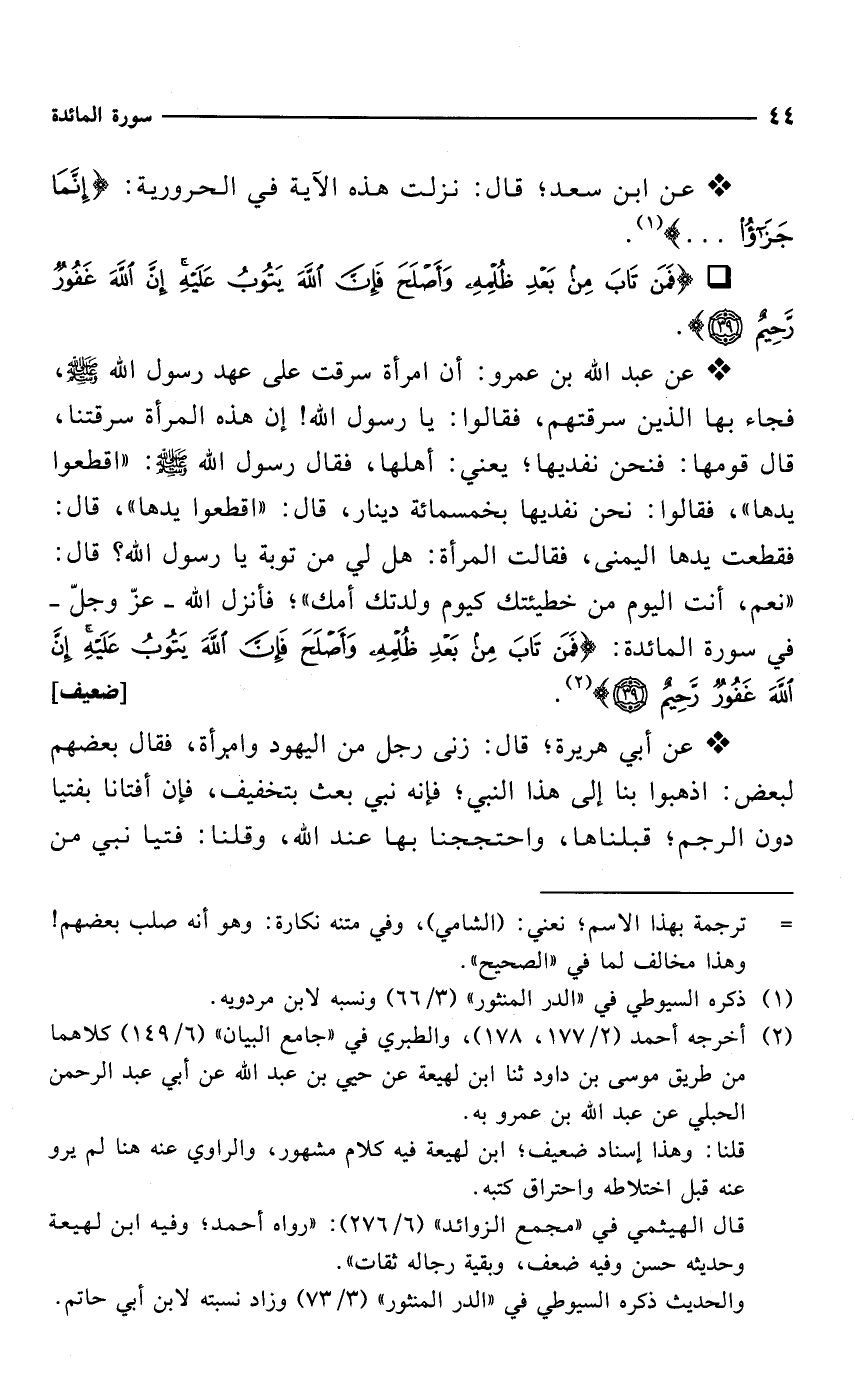 ٤٤ سورة المائدة
❖ عن ابن سعد؛ قال: نزلت هذه الآية في الحرورية: ﴿إِنَّمَا
جَزَٰٓؤُا۟ ...﴾(١).
❑ ﴿فَمَن تَابَ مِنۢ بَعْدِ ظُلْمِهِۦ وَأَصْلَحَ فَإِنَّ ٱللَّهَ يَتُوبُ عَلَيْهِ ۗ إِنَّ ٱللَّهَ غَفُورٌ
رَّحِيمٌ ﴿٣٩﴾﴾.
❖ عن عبد الله بن عمرو: أن امرأة سرقت على عهد رسول الله ﷺ،
فجاء بها الذين سرقتهم، فقالوا: يا رسول الله! إن هذه المرأة سرقتنا،
قال قومها: فنحن نفديها؛ يعني: أهلها، فقال رسول الله ﷺ: «اقطعوا
يدها»، فقالوا: نحن نفديها بخمسمائة دينار، قال: «اقطعوا يدها»، قال:
فقطعت يدها اليمنى، فقالت المرأة: هل لي من توبة يا رسول الله؟ قال:
«نعم، أنت اليوم من خطيئتك كيوم ولدتك أمك»؛ فأنزل الله ـ عزّ وجلّ ـ
في سورة المائدة: ﴿فَمَن تَابَ مِنۢ بَعْدِ ظُلْمِهِۦ وَأَصْلَحَ فَإِنَّ ٱللَّهَ يَتُوبُ عَلَيْهِ ۗ إِنَّ
ٱللَّهَ غَفُورٌ رَّحِيمٌ ﴿٣٩﴾﴾(٢). [ضعيف]
❖ عن أبي هريرة؛ قال: زنى رجل من اليهود وامرأة، فقال بعضهم
لبعض: اذهبوا بنا إلى هذا النبي؛ فإنه نبي بعث بتخفيف، فإن أفتانا بفتيا
دون الرجم؛ قبلناها، واحتججنا بها عند الله، وقلنا: فتيا نبي من
= ترجمة بهذا الاسم؛ نعني: (الشامي)، وفي متنه نكارة: وهو أنه صلب بعضهم!
وهذا مخالف لما في «الصحيح».
(١) ذكره السيوطي في «الدر المنثور» (٣/ ٦٦) ونسبه لابن مردويه.
(٢) أخرجه أحمد (٢/ ١٧٧، ١٧٨)، والطبري في «جامع البيان» (٦/ ١٤٩) كلاهما
من طريق موسى بن داود ثنا ابن لهيعة عن حيي بن عبد الله عن أبي عبد الرحمن
الحبلي عن عبد الله بن عمرو به.
قلنا: وهذا إسناد ضعيف؛ ابن لهيعة فيه كلام مشهور، والراوي عنه هنا لم يرو
عنه قبل اختلاطه واحتراق كتبه.
قال الهيثمي في «مجمع الزوائد» (٦/ ٢٧٦): «رواه أحمد؛ وفيه ابن لهيعة
وحديثه حسن وفيه ضعف، وبقية رجاله ثقات».
والحديث ذكره السيوطي في «الدر المنثور» (٣/ ٧٣) وزاد نسبته لابن أبي حاتم.